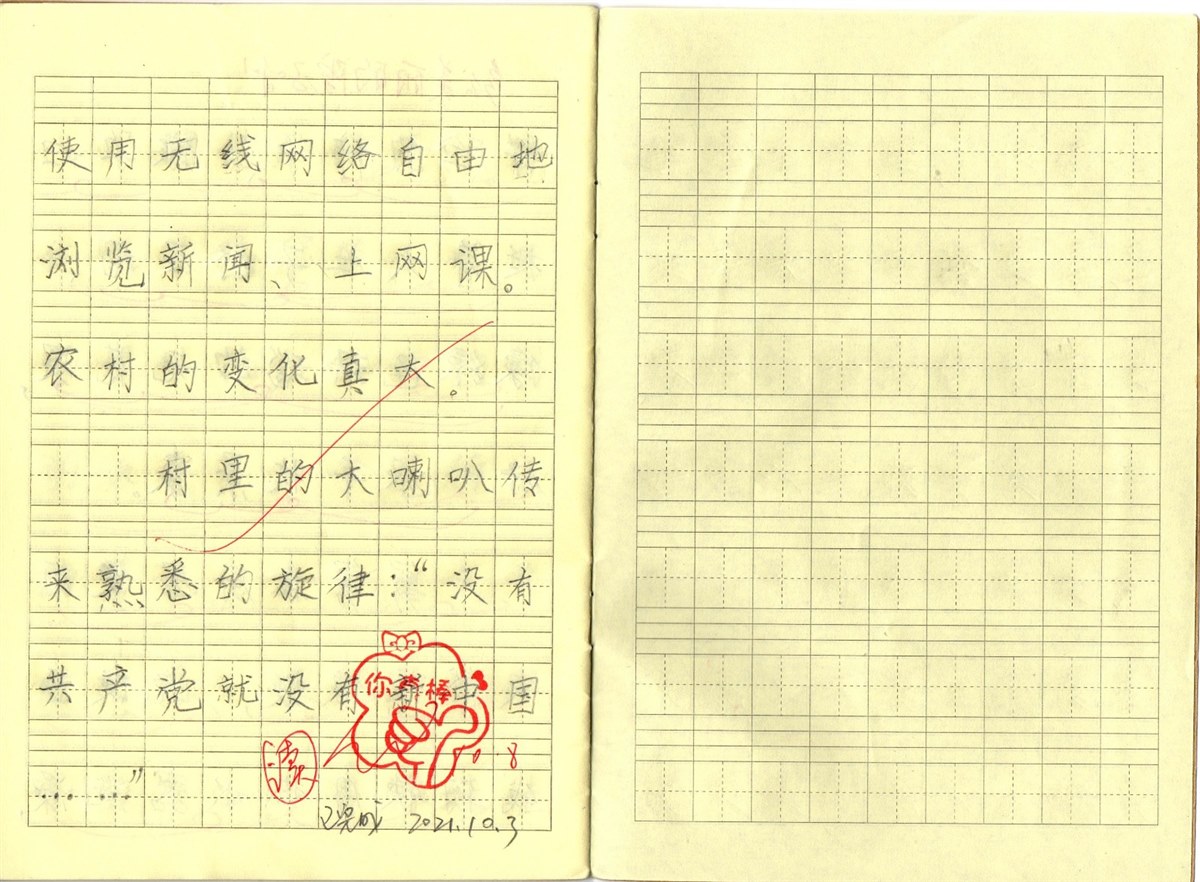 使用无线网络自由地
浏览新闻、上网课。
农村的变化真大。
村里的大喇叭传
来熟悉的旋律：“没有
共产党就没有新中国
……”
你真棒
10.8
已完成 2021.10.3